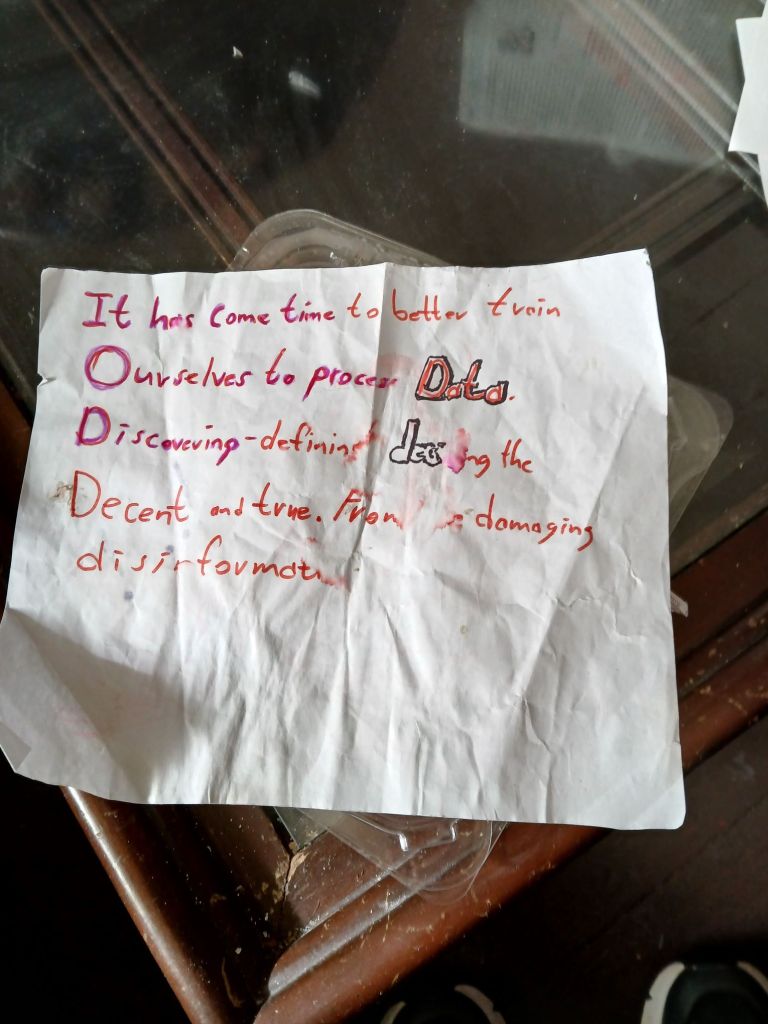 It has come time to better train
Ourselves to process Data.
Discovering-defining the
Decent and true. From damaging
disinformati